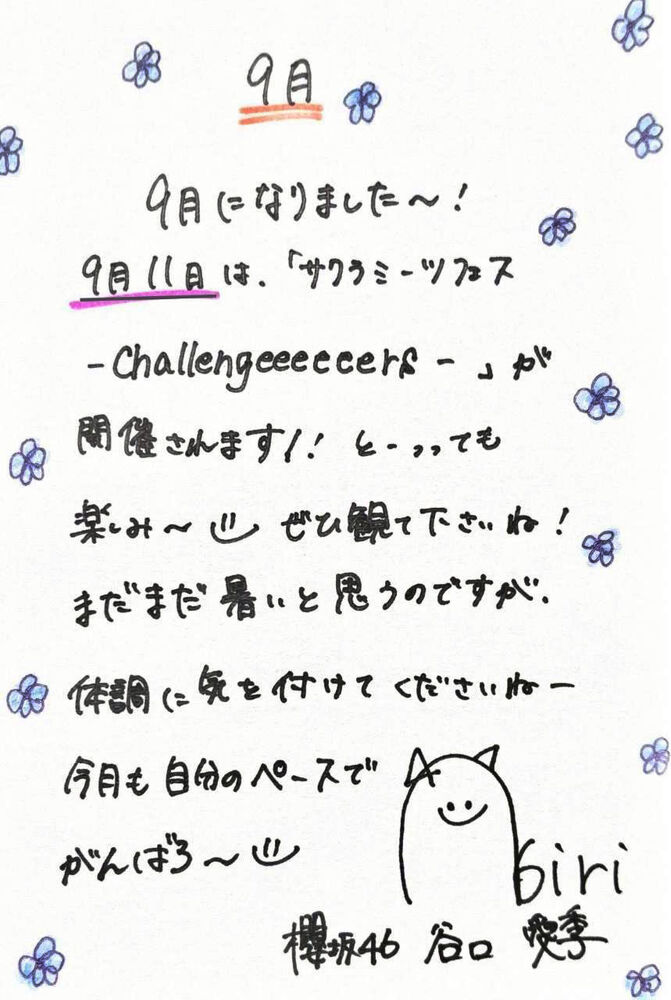 9月
9月になりました〜!
9月11日は、「サクラミーツフェス
-Challengeeeeeers-」が
開催されます!! とーっっても
楽しみ〜 ぜひ観て下さいね!
まだまだ暑いと思うのですが、
体調に気を付けてくださいねー
今月も自分のペースで
がんばろ〜
Airi
櫻坂46 谷口 愛季